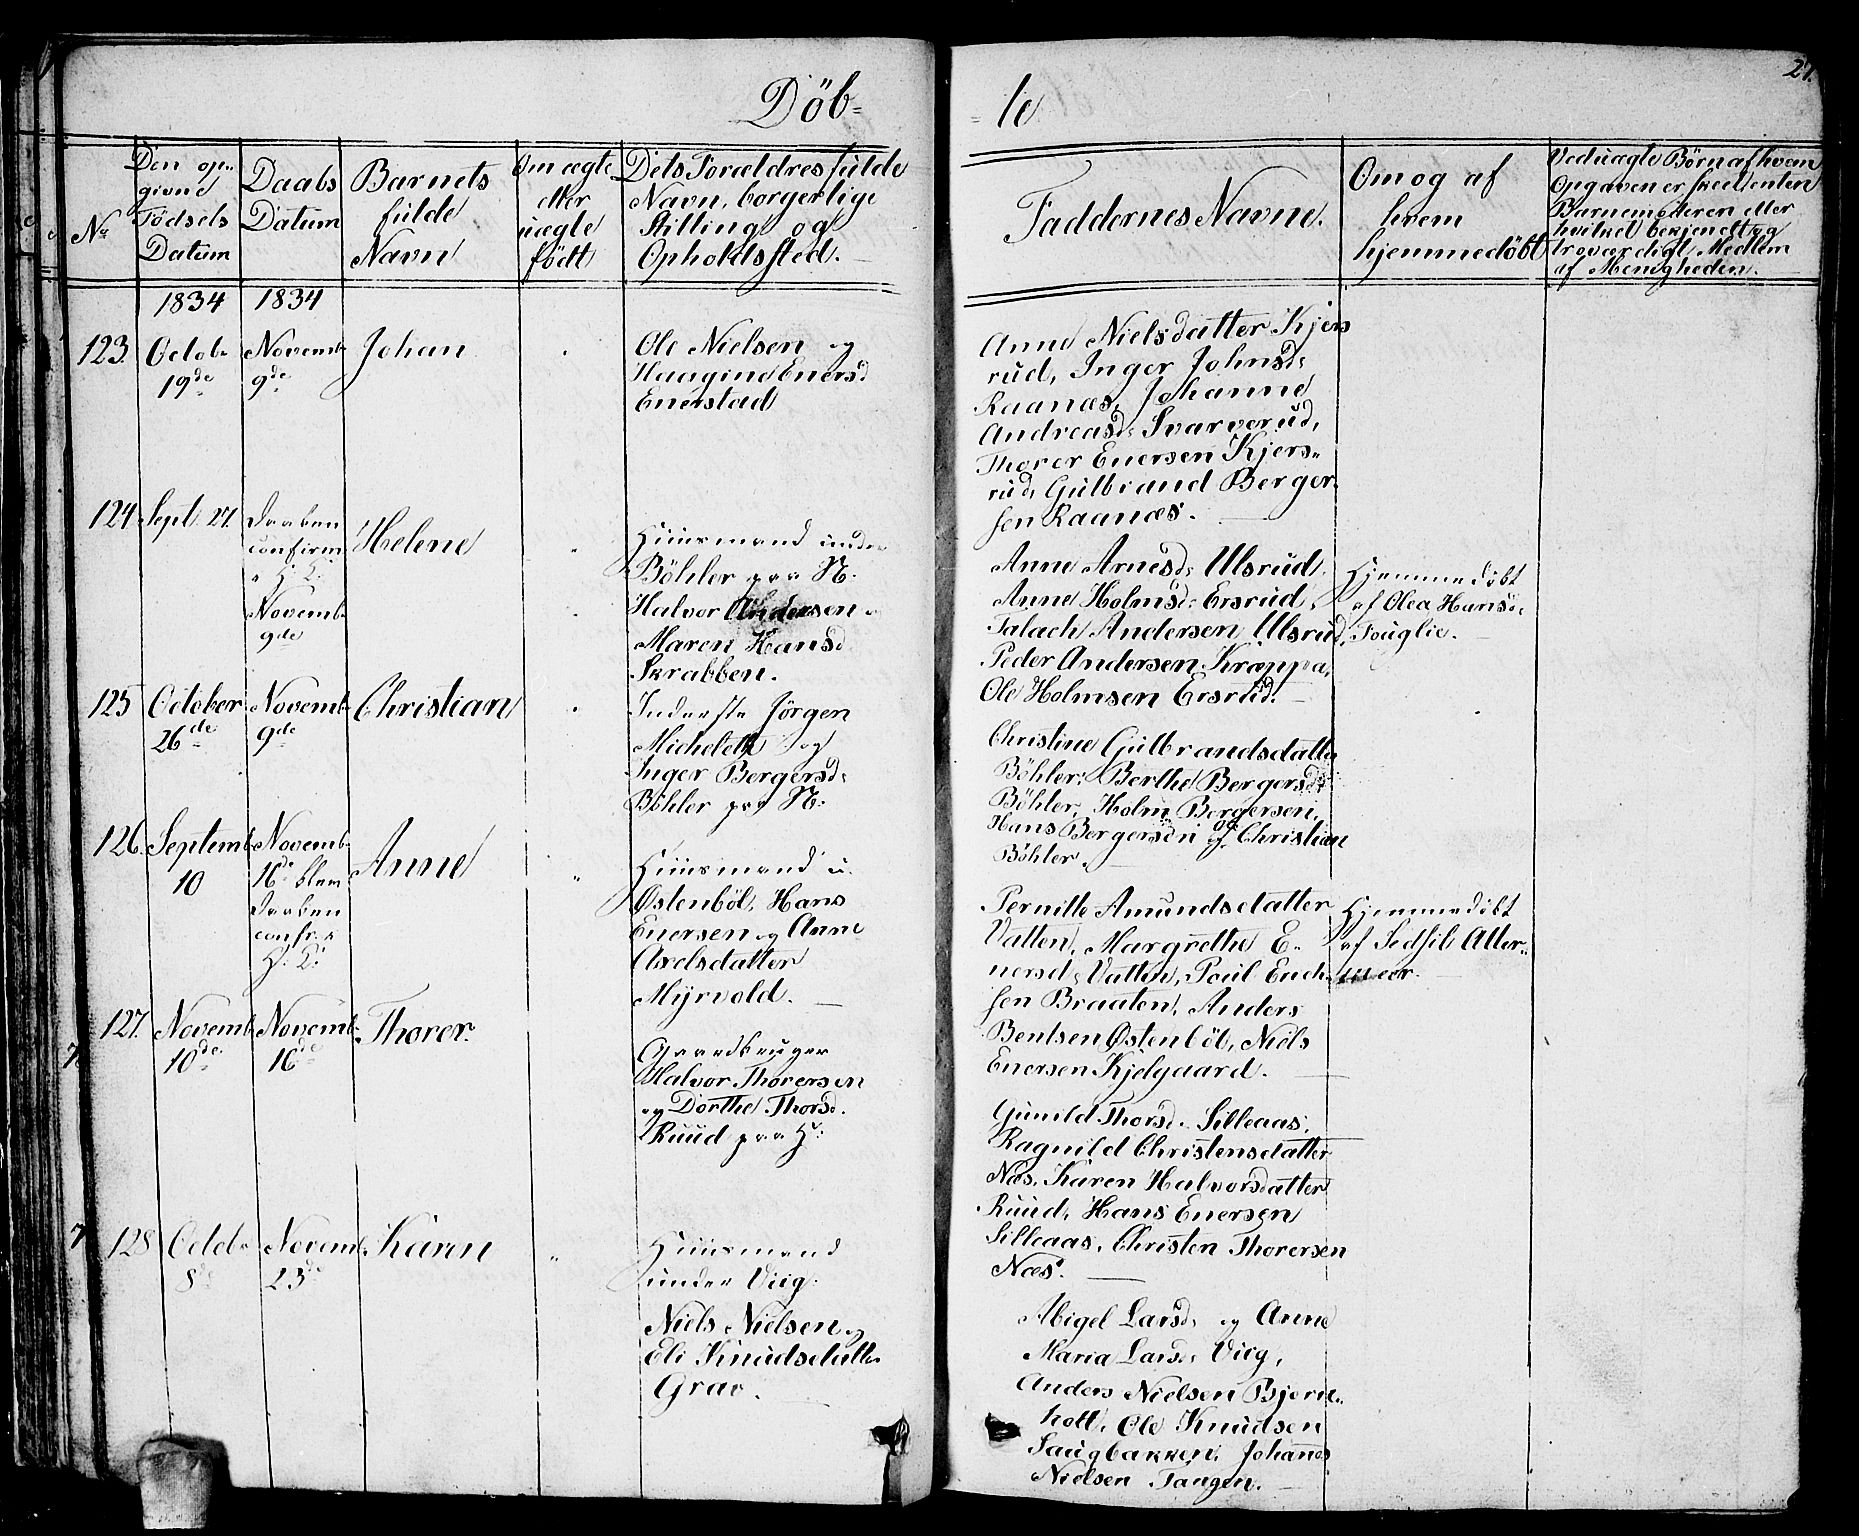 Döb=
=te
27.
No
Den op=
givne
Födsels
Datum
Daabs
Datum
Barnets
fulde
Navn
Om ægte
eller
uægte
födt
Dets Forældres fulde
Navn, borgerlige
Stilling og
Opholdssted.
Faddernes Navne.
Om og af
hvem
hjemmedöbt
Ved uægte Börn af hvem
Opgaven er skeet enten
Barnemoderen eller
hvilket bekjendt og
troværdigt Medlem
af Menigheden.
1834
1834
123.
Octob.
19de
Novemb.
9de
Johan
Ole Nielsen og
Haagine Enersd
Enerstad
Anne Nielsdatter Kjers
rud, Inger Johnsd:
Raanæs, Johanne
Andreasd: Svarverud,
Thorer Enersen Kjers=
rud, Gulbrand Berger
sen Raanæs.
124
Sept. 27.
Daaben
confirm.
i H. K.
Novemb.
9de
Helene
Huusmand under
Böhler paa N:
Halvor Andersen
Maren Hansd
Skrabben.
Anne Arnesd: Ulsrud
Anne Holmsd: Ersrud,
Talach Andersen Ulsrud,
Peder Andersen Kræppa,
Ole Holmsen Ersrud.
Hjemmedöbt
af Olea Hansd:
Fuglie.
125
October
26de
Novemb.
9de
Christian
Inderste Jörgen
Michelet og
Inger Bergersd:
Böhler paa N:
Christine Gulbrandsdatter
Böhler, Berthe Bergersd:
Böhler, Holm Bergersen,
Hans Bergersen og Christian
Böhler.
126.
Septemb.
10
Novemb.
16de blev
Daaben
confr. i
H. K:
Anne
Huusmand u.
Østenböl, Hans
Enersen og Anne
Axelsdatter
Myrvold.
Pernille Amundsdatter
Vatten, Margrethe E=
nersd: Vatten, Poul Ench
sen Braaten, Anders
Bentsen Østenböl, Niels
Enersen Kjelgaard.
Hjemmedöbt
af Sedsil Atter=
meer.
127.
Novemb.
10de
Novemb.
16de
Thorer.
Gaardbruger
Halvor Thorersen
og Dorthe Thorsd.
Ruud paa H:
Gunild Thorsd. Silleaas,
Ragnild Christensdatter
Næs, Karen Halvorsdatter
Ruud, Hans Enersen
Silleaas, Christen Thorersen
Næs.
128
Octob.
8de
Novemb.
23de
Karen
Huusmand
under Viig.
Niels Nielsen og
Eli Knudsdatter
Grav.
Abigel Larsd: og Anne
Maria Larsd: Viig,
Anders Nielsen Bjerk=
holt, Ole Knudsen
Saugbakken, Johannes
Nielsen Tangen.